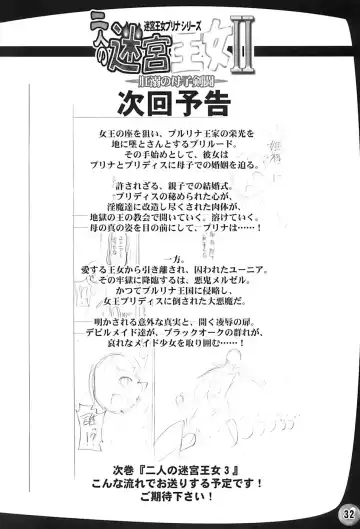 迷宮王女プリナシリーズ
二人の迷宮王女II
狂瀾の母子剣闘
次回予告
女王の座を狙い、プルリナ王家の栄光を
地に堕とさんとするプリルード。
その手始めとして、彼女は
プリナとプリディスに母子での婚姻を迫る。
許されざる、親子での結婚式。
プリディスの秘められた心が、
淫魔達に改造し尽くされた肉体が、
地獄の王の教会で開いていく。溶けていく。
母の真の姿を目の前にして、プリナは……！
一方。
愛する王女から引き離され、囚われたユーニア。
その牢獄に降臨するは、悪鬼メルゼル。
かつてプルリナ王国に侵略し、
女王プリディスに倒された大悪魔だ。
明かされる意外な真実と、開く凌辱の扉。
デビルメイド達が、ブラックオークの群れが、
哀れなメイド少女を取り囲む…！
誰!?
次巻『二人の迷宮王女３』
こんな流れでお送りする予定です！
ご期待下さい！
32